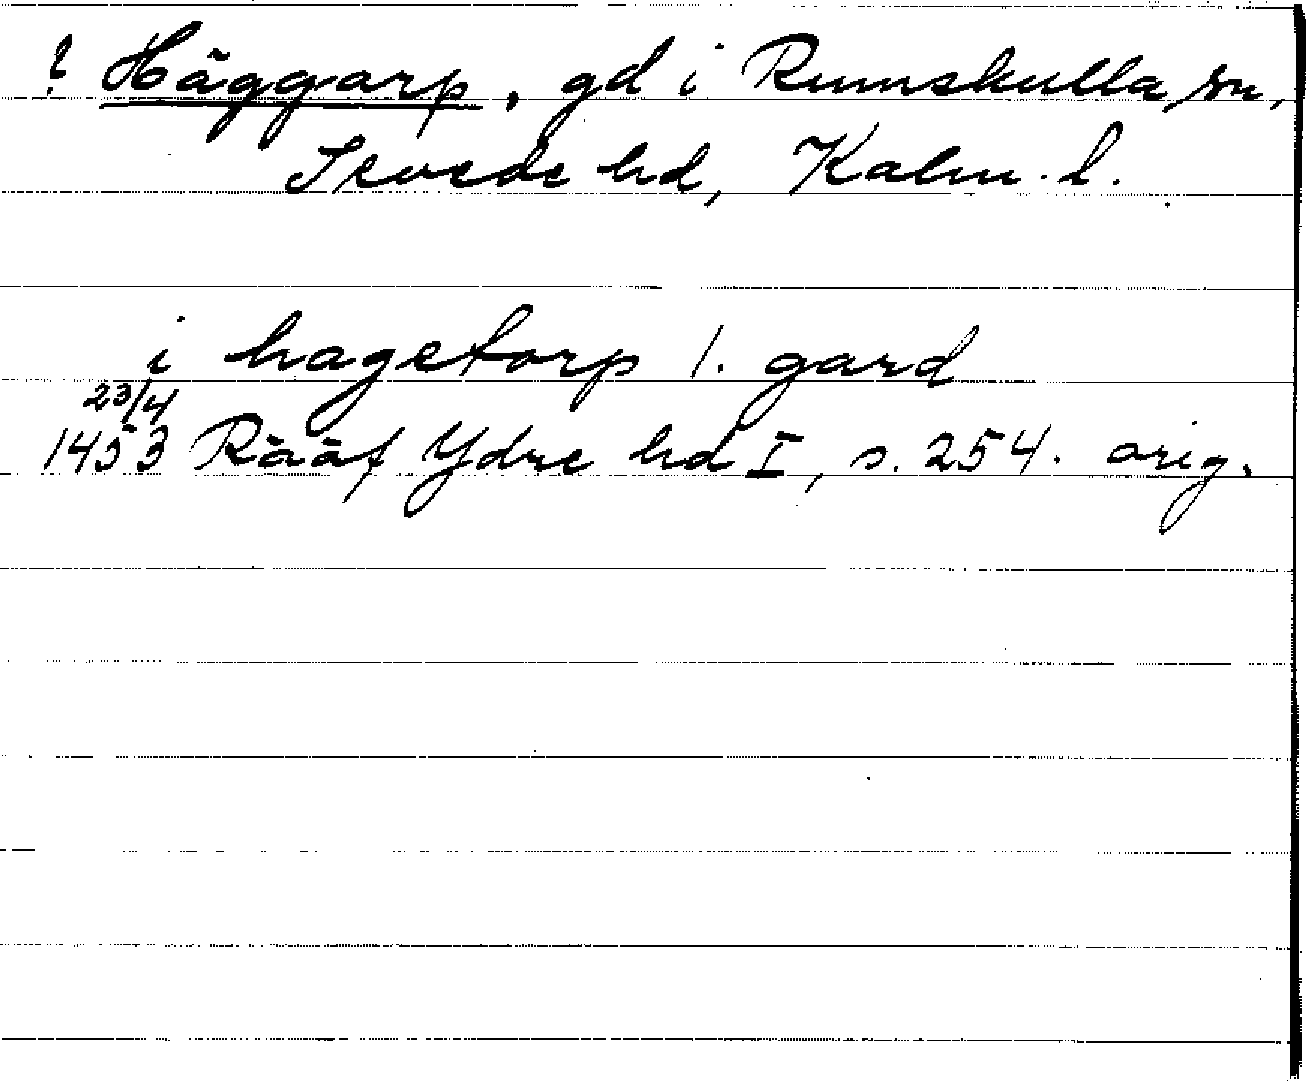 ? Häggarp, gd i Rumskulla sn,
Sevede hd, Kalm. l.
i hagetorp 1. gard
23/4
1453 Rääf Ydre hd I, s. 254. orig.